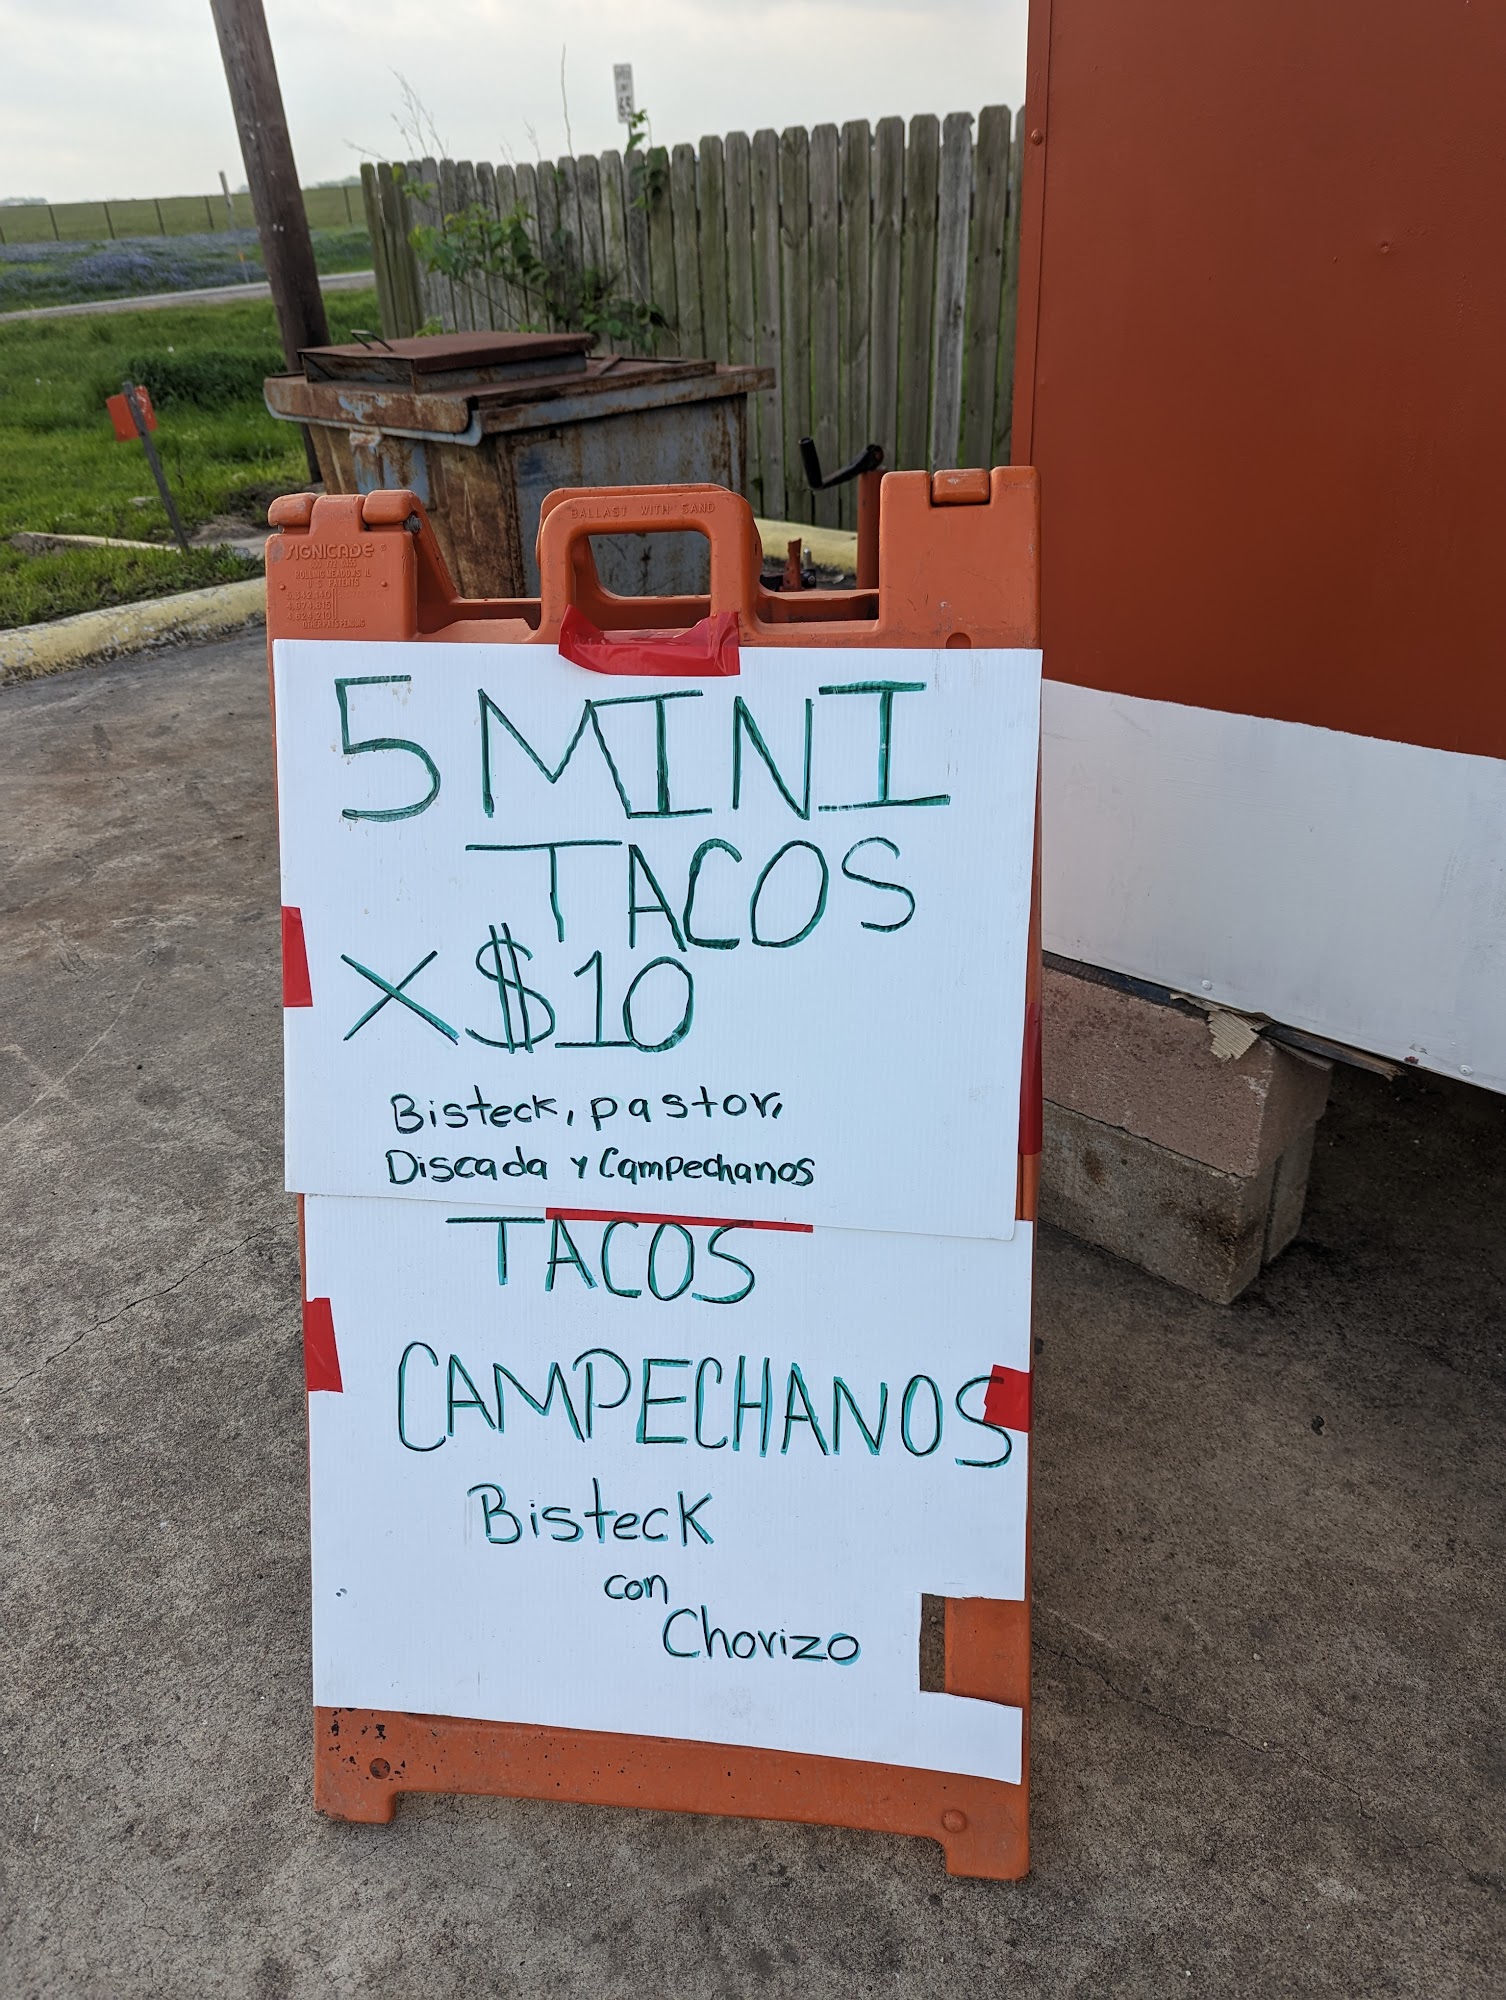 65
BALLAST WITH SAND
SIGNICADE
ROLLING MEADOWS IL
U S PATENTS
OTHER PATS PENDING
5 MINI
TACOS
X $10
Bisteck, pastor,
Discada y Campechanos
TACOS
CAMPECHANOS
Bisteck
con
Chorizo